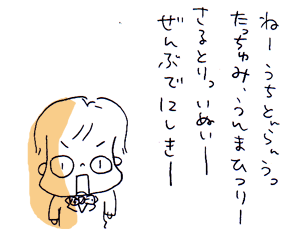 ねー うちとぃらぅっ
たっちゅみ、うんまひつりー
さるとりっいぬぃー
ぜんぶでにしきー